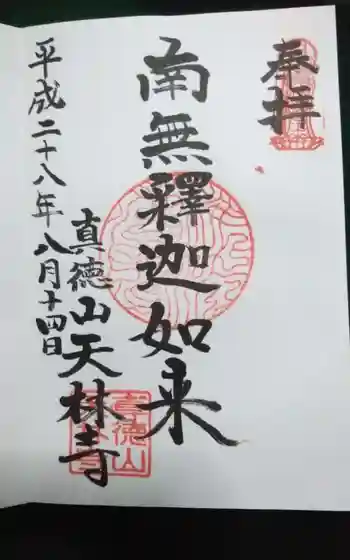 奉拝
南無釋迦如来
真徳山天林寺
平成二十八年八月十四日
真徳山